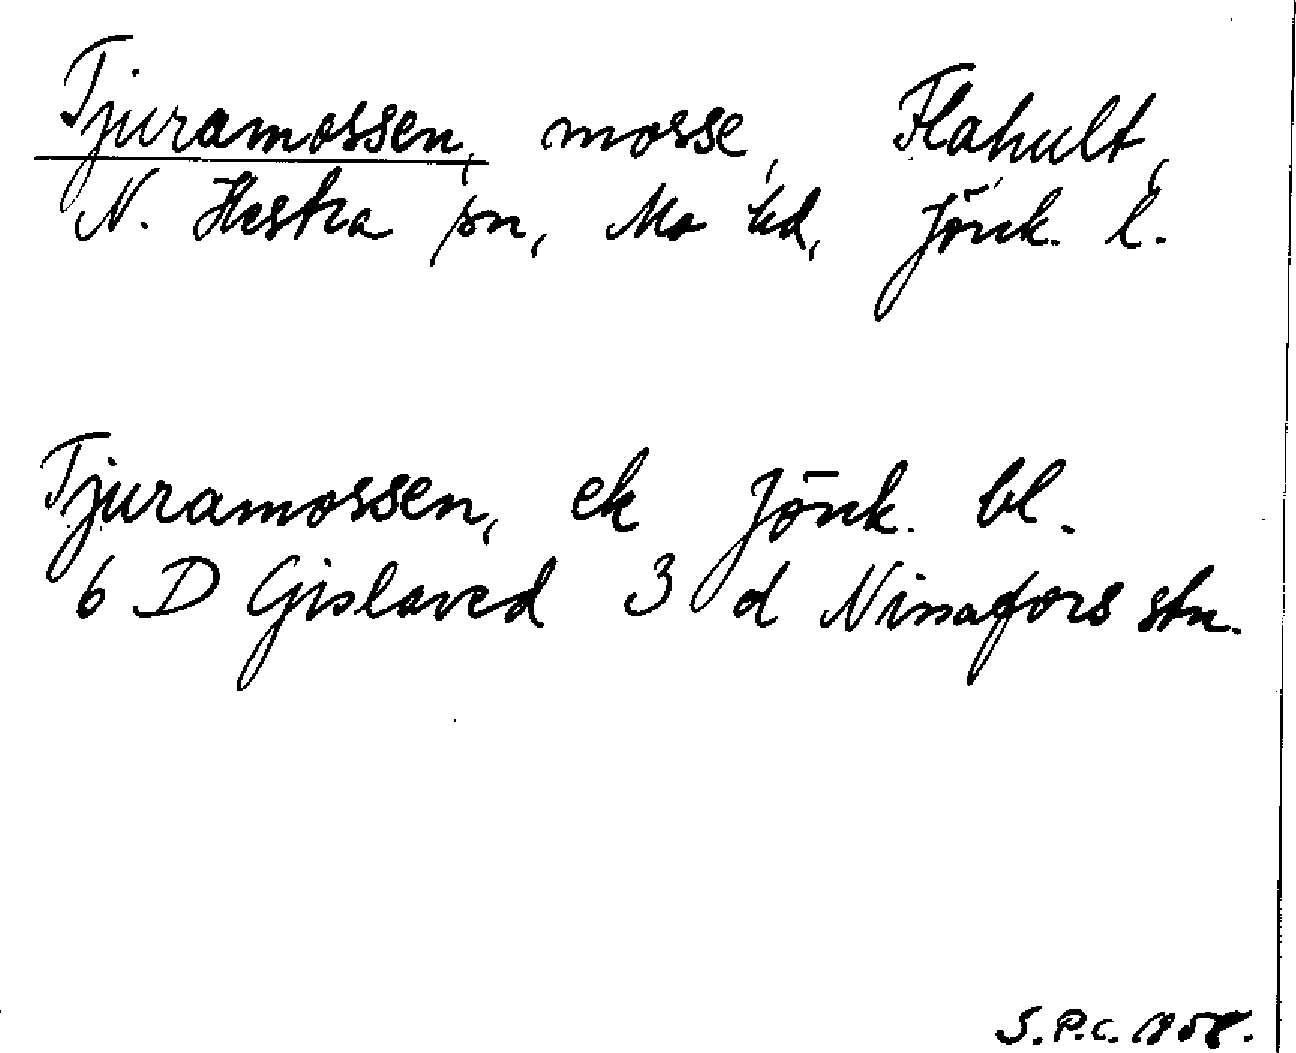 Tjuramossen, mosse, Flahult,
N. Hestra sn, Mo hd, Jönk. l.
Tjuramossen, ek Jönk. bl.
6 D Gislaved 3 d Nissafors stn.
S.P.C. 1958.